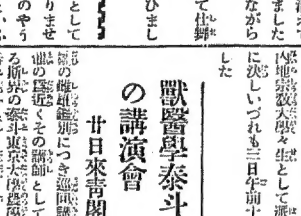 ました
ながら
て仕舞
ひまし
として
りませ
のやう
内地宗教大學々生として選
に決しいづれも三日午前十
した
獸醫學泰斗
の講演會
廿日來靑閣
雛の雌雄鑑別につき巡囘講
他の爲近くその講師として
る斯界の泰斗東京大學